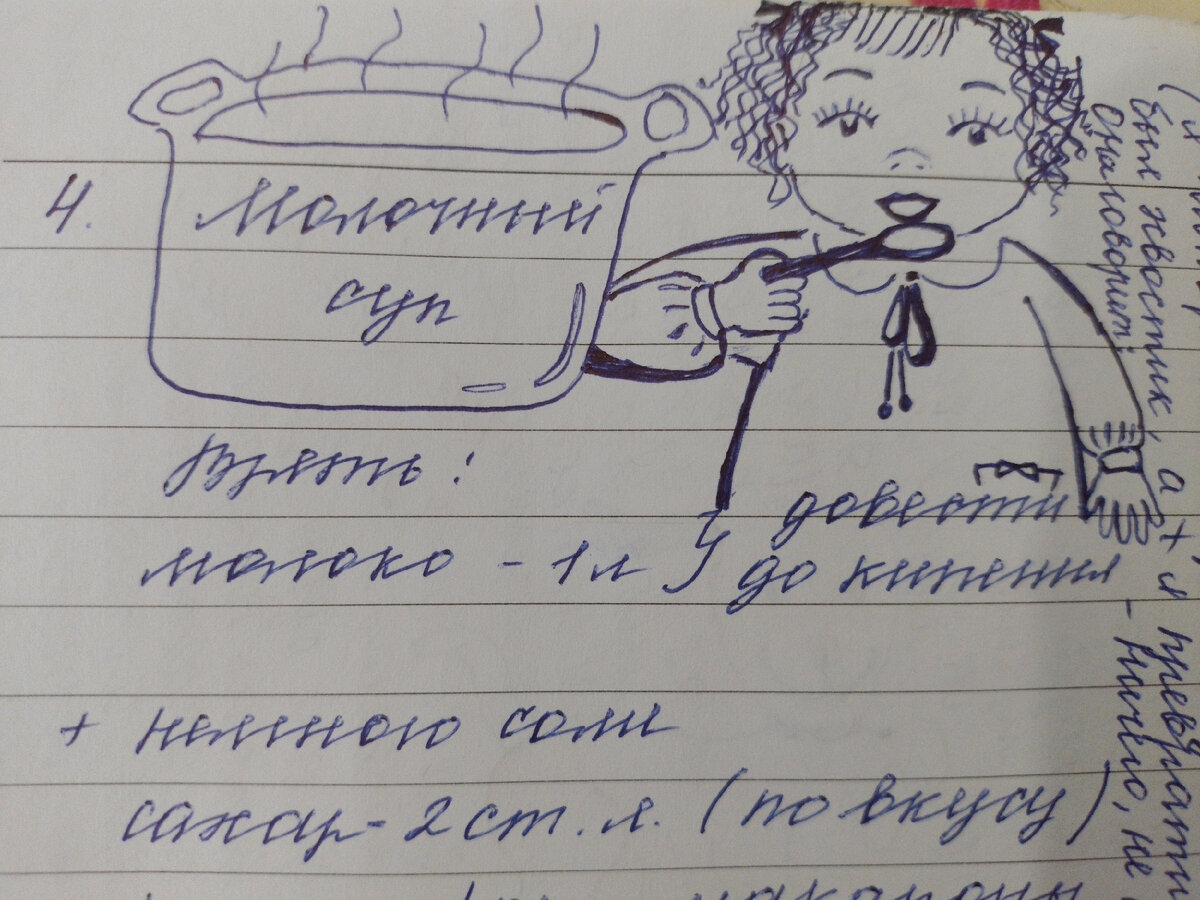 4. Молочный
суп
Взять:
молоко - 1л } довести
до кипения
+ немного соли
сахар - 2 ст. л. (по вкусу)
макароны
был хвостик, а я преврати
Она говорит: - Ничего, не